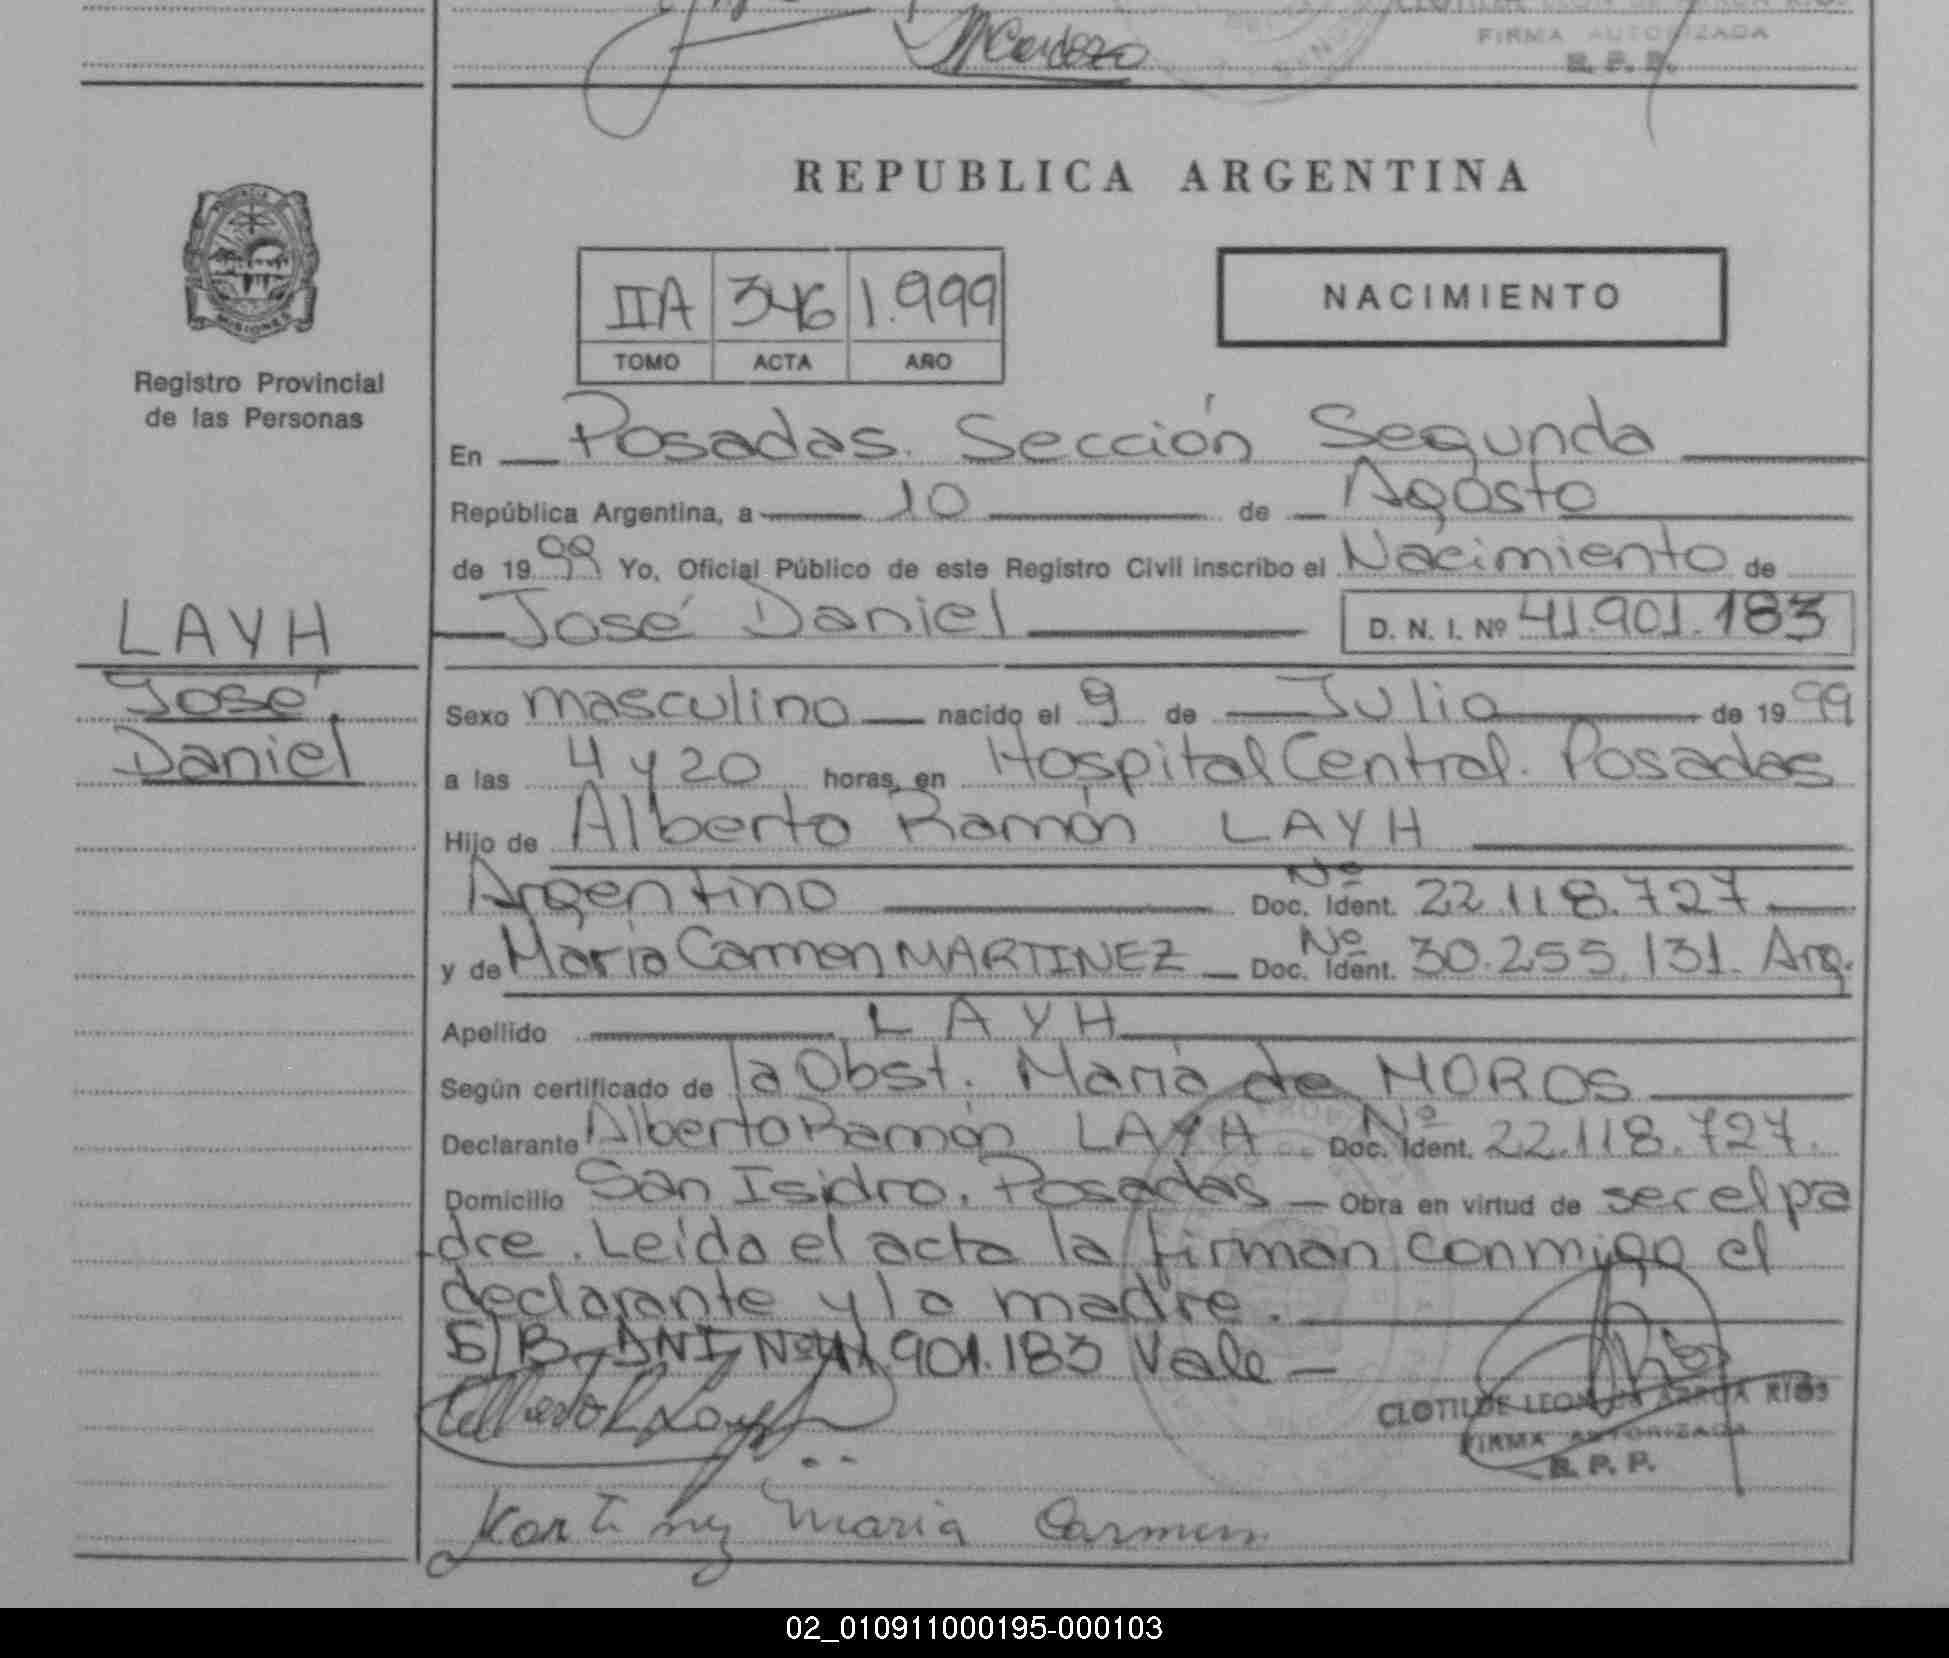 MCardozo
FIRMA AUTORIZADA
R. P. P.
PROVINCIA
MISIONES
Registro Provincial
de las Personas
LAYH
José
Daniel
REPUBLICA ARGENTINA
IIA 346 1.999
TOMO ACTA AÑO
NACIMIENTO
En Posadas. Sección Segunda
República Argentina, a 10 de Agosto
de 1999 Yo, Oficial Público de este Registro Civil inscribo el Nacimiento de
José Daniel D. N. I. Nº 41.901.183
Sexo masculino nacido el 9 de Julio de 1999
a las 4 y 20 horas, en Hospital Central. Posadas
Hijo de Alberto Ramón LAYH
Argentino Nº Doc. Ident. 22.118.727
y de María Carmen MARTINEZ Nº Doc. Ident. 30.255.131. Arg.
Apellido LAYH
Según certificado de la Obst. María de MOROS
Declarante Alberto Ramón LAYH Nº Doc. Ident. 22.118.727.
Domicilio San Isidro. Posadas Obra en virtud de ser el pa
dre. Leída el acta la firman conmigo el
declarante y la madre.
S/B-DNI Nº 41.901.183 Vale
CLOTILDE LEON DE ARRUA RIOS
FIRMA AUTORIZADA
R. P. P.
Maria Carmen
02_010911000195-000103